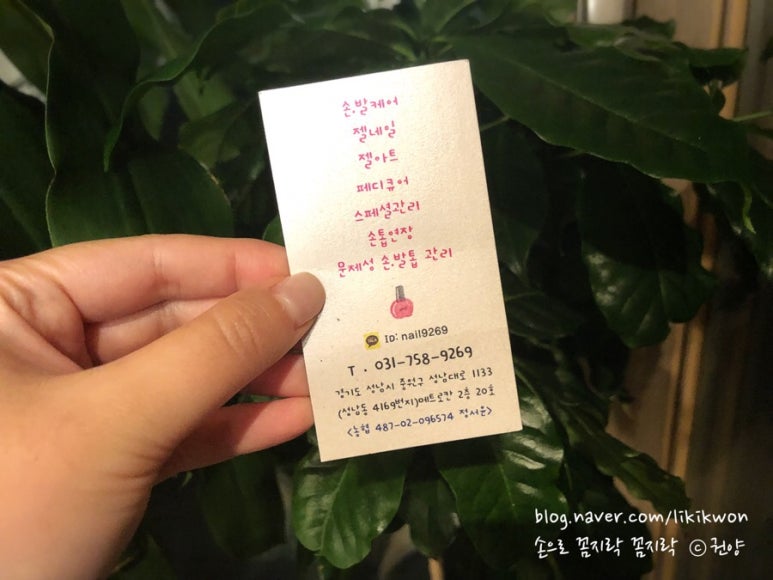 손.발케어
젤네일
젤아트
페디큐어
스페셜관리
손톱연장
문제성 손.발톱 관리
ID: nail9269
T . 031-758-9269
경기도 성남시 중원구 성남대로 1133
(성남동 4169번지)메트로칸 2층 20호
<농협 487-02-096574 정서윤>
blog.naver.com/likikwon
손으로 꼼지락 꼼지락 ⓒ권양